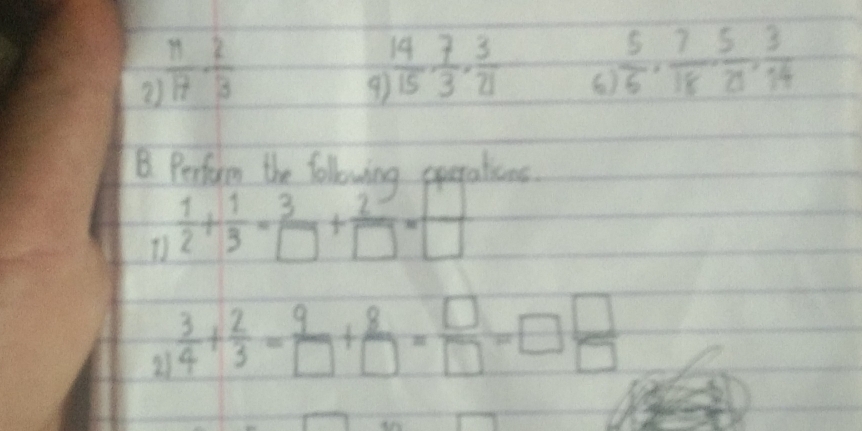 2) 11/17 · 2/3 4) 14/15 · 7/3 · 3/21 6) 5/6 · 7/18 · 5/21 · 3/14
B. Perform the following operations.
1) 1/2 + 1/3 = 3/□ + 2/□ = □/□
2) 3/4 + 2/3 = 9/□ + 8/□ = □/□ = □ □/□